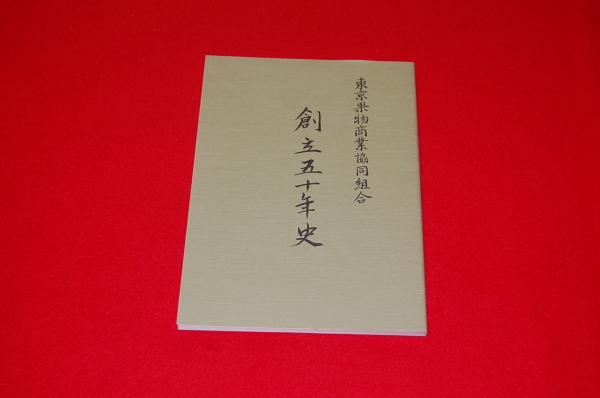 東京果物商業協同組合
創立五十年史